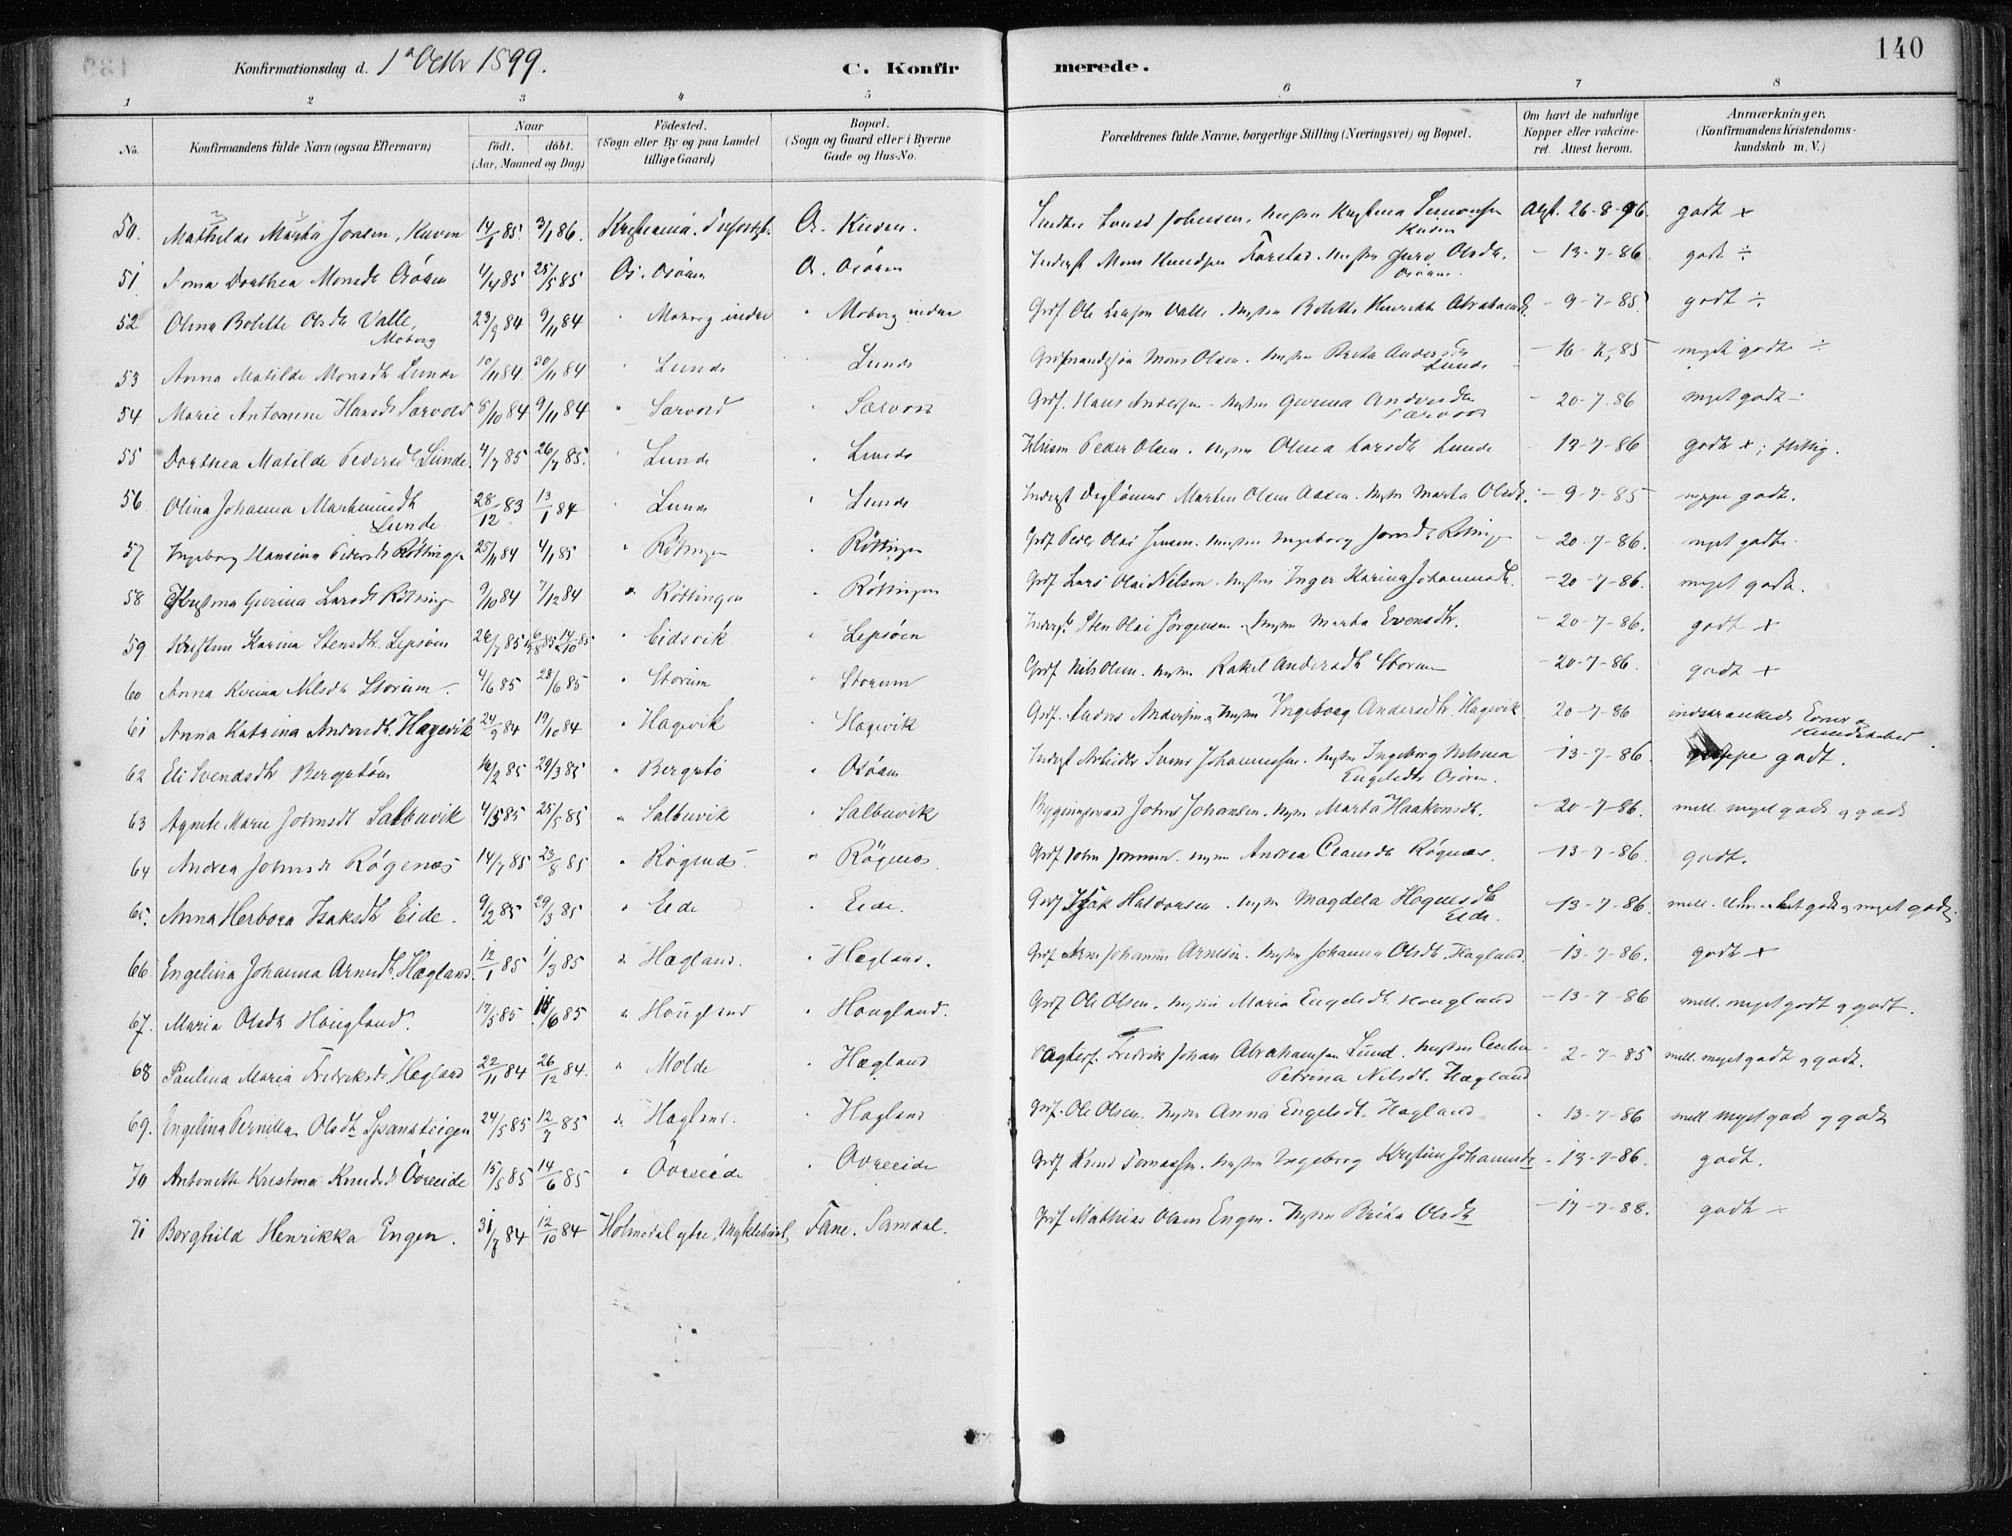 140
Konfirmationsdag d. 1ste Octbr 1899. C. Konfirmerede.
1 2 3 4 5 6 7 8
No. Konfirmandens fulde Navn (ogsaa Efternavn) Naar født. døbt. (Aar, Maaned og Dag) Fødested. (Sogn eller By og paa Landet tillige Gaard) Bopæl. (Sogn og Gaard eller i Byerne Gade og Hus-No. Forældrenes fulde Navne, borgerlige Stilling (Næringsvei) og Bopæl. Om havt de naturlige Kopper eller vakcineret. Attest herom. Anmærkninger. (Konfirmandens Kristendomskundskab m. V.)
50. Mathilde Marta Jonsen, Kuven 14/1 85. 3/1 86. Kristiania. Os. Kuven. Kuven Att. 26-8-96. godt +
51 Dorthea Monsdtr Osøen 4/4 85 25/5 85 Os. Osøen Os. Osøen Inderst Mons Knudsen, Hustru Guro Olsdtr. Osøen. - 13-7-86. godt ÷
52 Olina Bolette Olsdtr Valle, Moberg 23/9 84 9/11 84 " Moberg indre " Moberg indre Grdf Ole Larsen Valle. Hustru Bolette Henrikke Abrahamsd. - 9-7-85 godt ÷
53 Anna Matilde Monsdtr Lunde 10/11 84. 30/11 84 " Lunde Lunde Mons Olsen. Hustru Brita Andersdtr Lunde - 85 myet godt ÷
54. Marie Antonine Hansdtr Særvold 5/10 84 9/11 84 " Særvold " Særvold Grdf. Hans Andersen. Hustru Gurina Andersdtr Særvold - 20-7-86 myet godt ÷
55 Dorthea Matilde Pedersdtr Lunde 4/7 85 26/7 85. " Lunde " Lunde Peder Olsen. Hustru Olina Larsdtr Lunde - 13-7-86 godt +; flittig.
56. Olina Johanna Martinusdtr Lunde 28/12 83 13/1 84 " Lunde " Lunde Inderst Martin Olsen. Hustru Marta Olsdtr. - 9-7-85 neppe godt.
57 Ingeborg Hansina Pedersdtr Røttingen 25/11 84 4/1 85 " Røttingen " Røttingen Grdf. Peder Olai Jensen. Hustru Ingeborg Jonsdtr Røttingen - 20-7-86. myet godt.
58 Kristina Gurina Larsdtr Røttingen 9/10 84 7/12 84 " Røttingen " Røttingen Grdf Lars Olai Nilsen. Hustru Inger Karina Johannesdtr. - 20-7-86. myet godt.
59. Kristine Karina Stensdtr. Lepsøen 26/7 85 14/10 85 " Eidsvik " Lepsøen Inderst Sten Olai Jørgensen, Hustru Marta Evensdtr. - 20-7-86. godt +
60 Anna Nilsdtr Storum. 4/6 85 28/6 85 " Storum " Storum Grdf Nils Olsen. Hustru Rakel Andersdtr Storum - 20-7-86. godt +
61 Anna Katrina Andersdtr. Hagevik 24/9 84 19/10 84 " Hagevik " Hagevik Grdf. Anders Andersen. Hustru Ingeborg Andersdtr. Hagevik 20-7-86 indskrænkede Evner og Kundskaber.
62 Eli Svendsdtr Bergstøen 16/2 85 29/3 85 " Bergstø " Osøen Inderst Arbeider Svend Johannesen. Hustru Ingeborg Nilsina Engelsdtr Osøren. - 13-7-86. neppe godt.
63 Agnete Marie Johnsdtr Salbuvik 4/5 85 25/5 85 " Salbuvik " Salbuvik Johns Johansen. Hustru Marta Haakonsdtr. - 20-7-86. mell. myet godt og godt
64 Andrea Johnsdtr Røgenæs 14/7 85 23/8 85 " Røgenæs " Røgenæs Grdf John. Hustru Andrea Clausdtr Røgnæs. - 13-7-86. godt.
65. Anna Herborg Isaksdtr Eide. 9/2 85 29/3 85 " Eide " Eide. Grdf Isak Halvorsen. Hustru Magdela Hognesdtr Eide. - 13-7-86. mell. godt og myet godt.
66. Engelina Johanna Arnesdtr. Hægland. 12/1 85 1/3 85 " Hægland. " Hægland. Grdf Arne Johannes Arnesen. Hustru Johanna Olsdtr. Hægland. - 13-7-86. godt +
67. Maria Olsdtr Hougland. 17/5 85 14/6 85 " Hougland " Hougland. Grdf Ole Olsen. Hustru Maria Engelsdtr Hougland - 13-7-86 mell. myet godt og godt.
68 Paulina Maria Fredriksdtr Hægland 22/11 84 26/12 84. " Molde " Hægland Fredrik Johan Abrahamsen Lund. Hustru Cecilia Petrina Nilsdtr. Hægland - 2-7-85 mell. myet godt og godt.
69. Engelina Pernilla Olsdtr Spansteigen 24/5 85 12/7 85 " Hagland. " Hagland Grdf. Ole Olsen. Hustru Anna Engelsdtr. Hagland - 13-7-86 mell. myet godt og godt
70 Antonette Kristina Knudsdtr Øvreeide 15/5 85 14/6 85 " Øvreeide " Øvreeide Grdf Knud Tomassen. Hustru Ingeborg Kristine Johannesdtr - 13-7-86. godt.
71 Borghild Henrikka Engen. 31/8 84. 12/10 84 Holmedal ytre, Myklebust Fane. Samdal. Grdf Mathias Olsen Engen. Hustru Brita Olsdtr - 17-7-88. godt ÷